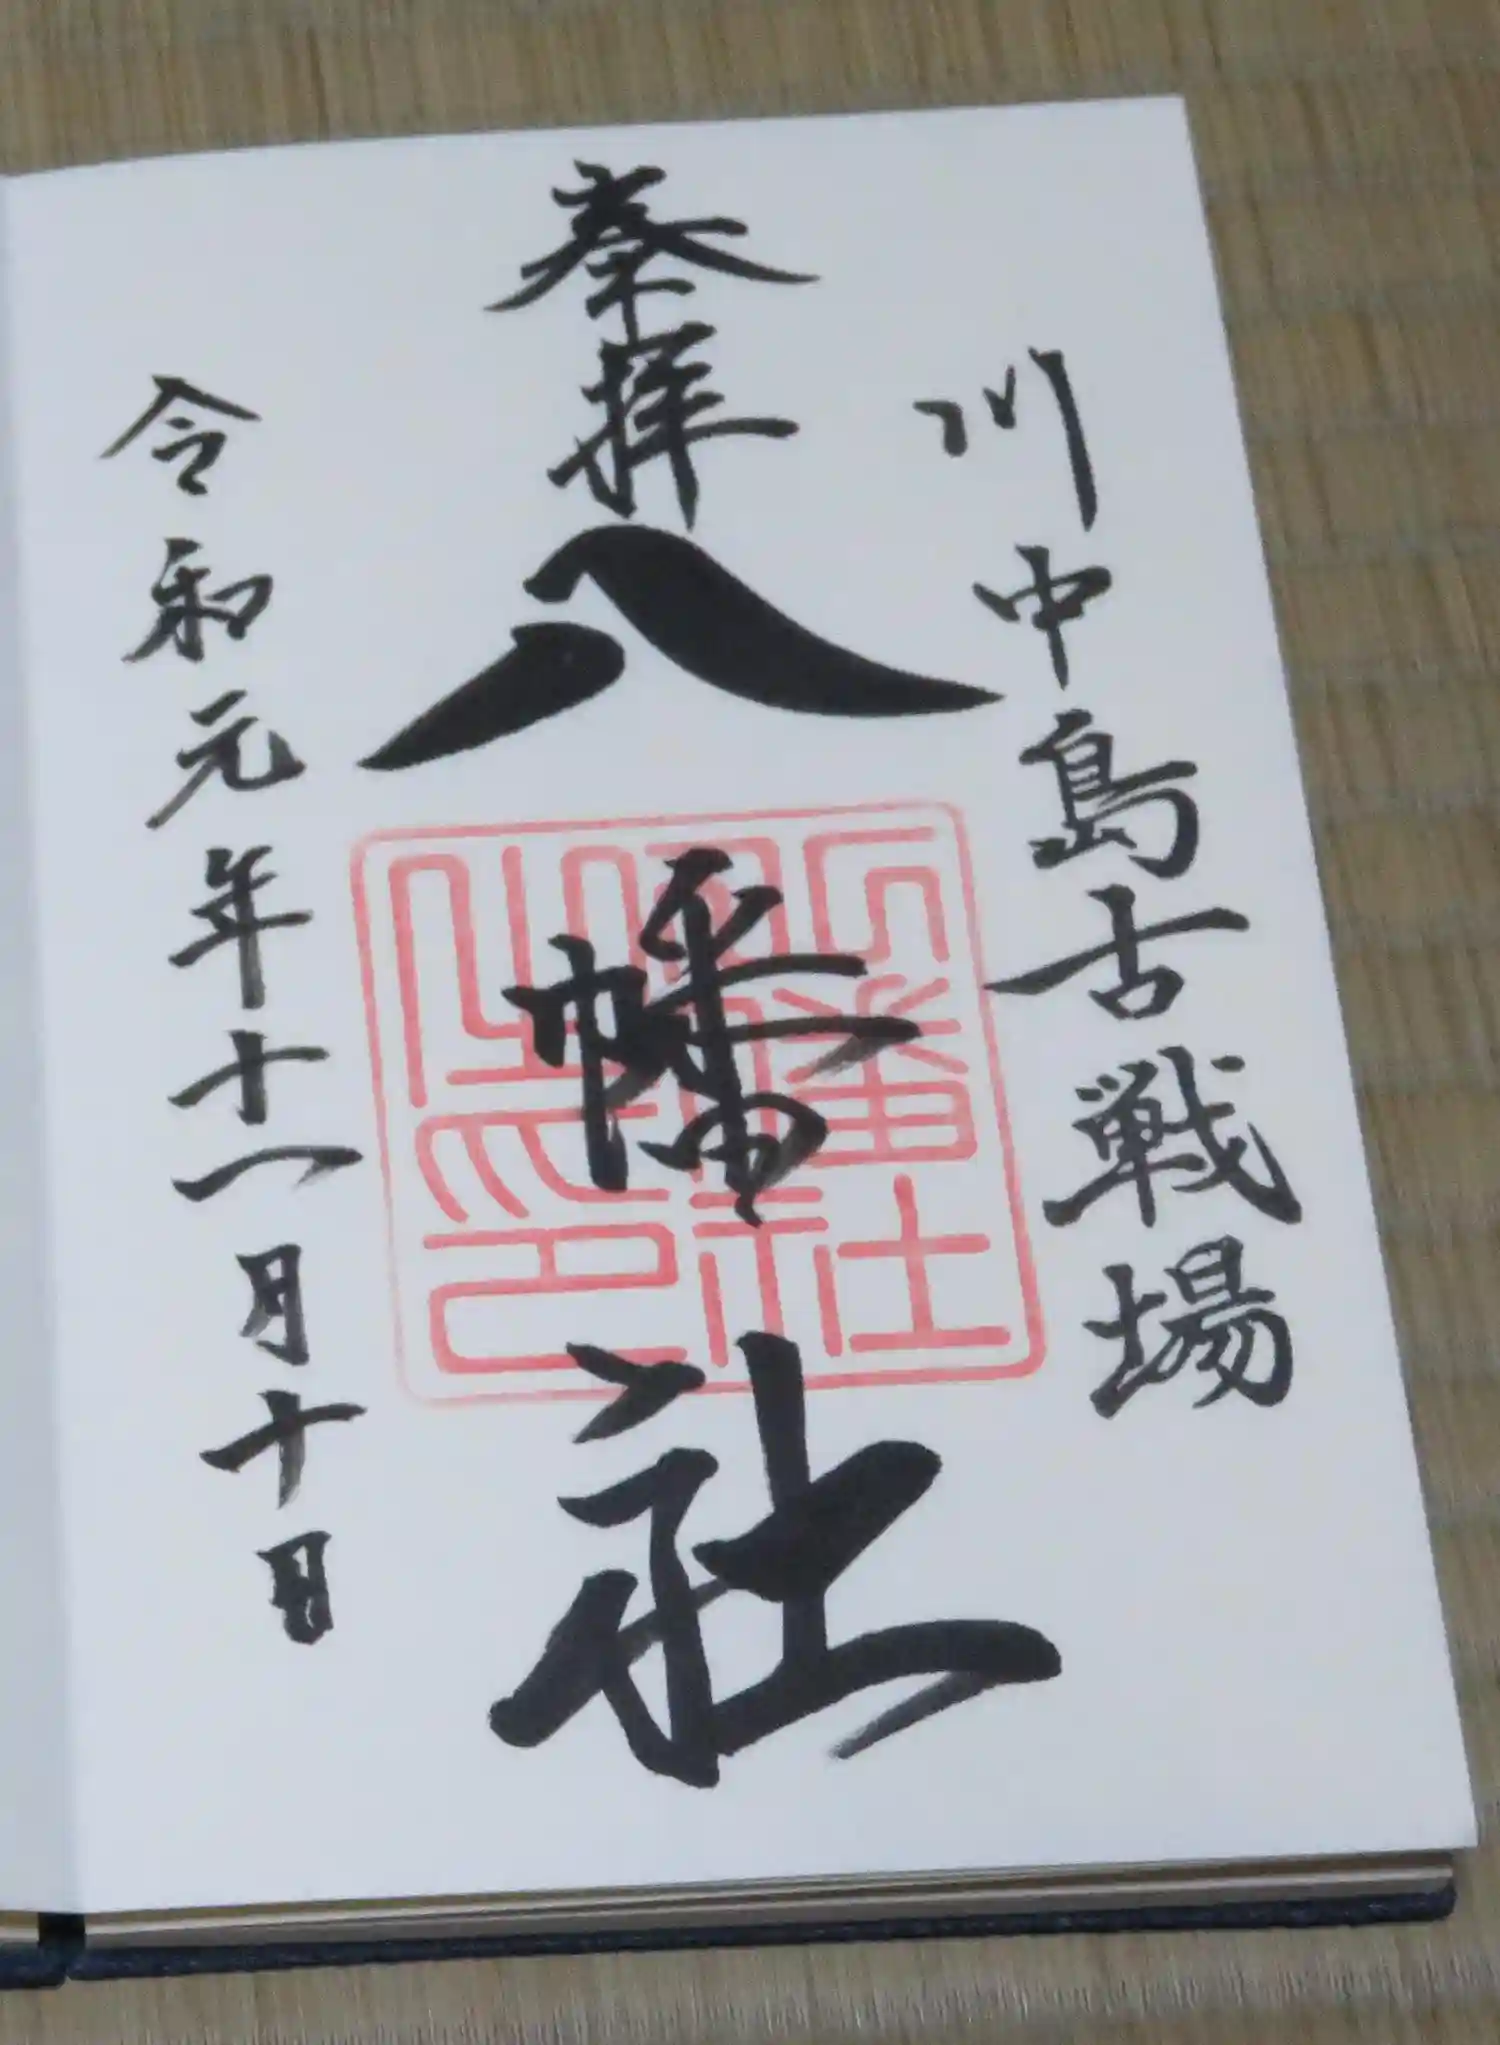 川中島古戦場
奉拝
八幡社
令和元年十一月十日
八幡社